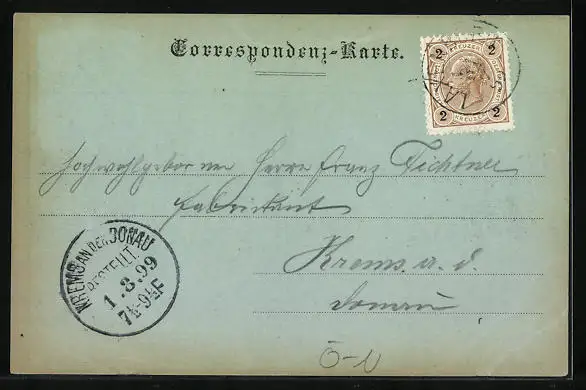 Correspondenz-Karte.
2 KREUZER 2
2 KREUZER 2
Hochwohlgeboren Herrn Franz Fichtner
Fabrikant
Krems a. d.
Donau
KREMS AN DER DONAU
BESTELLT
1.8.99
7½-9½F
Ö-N